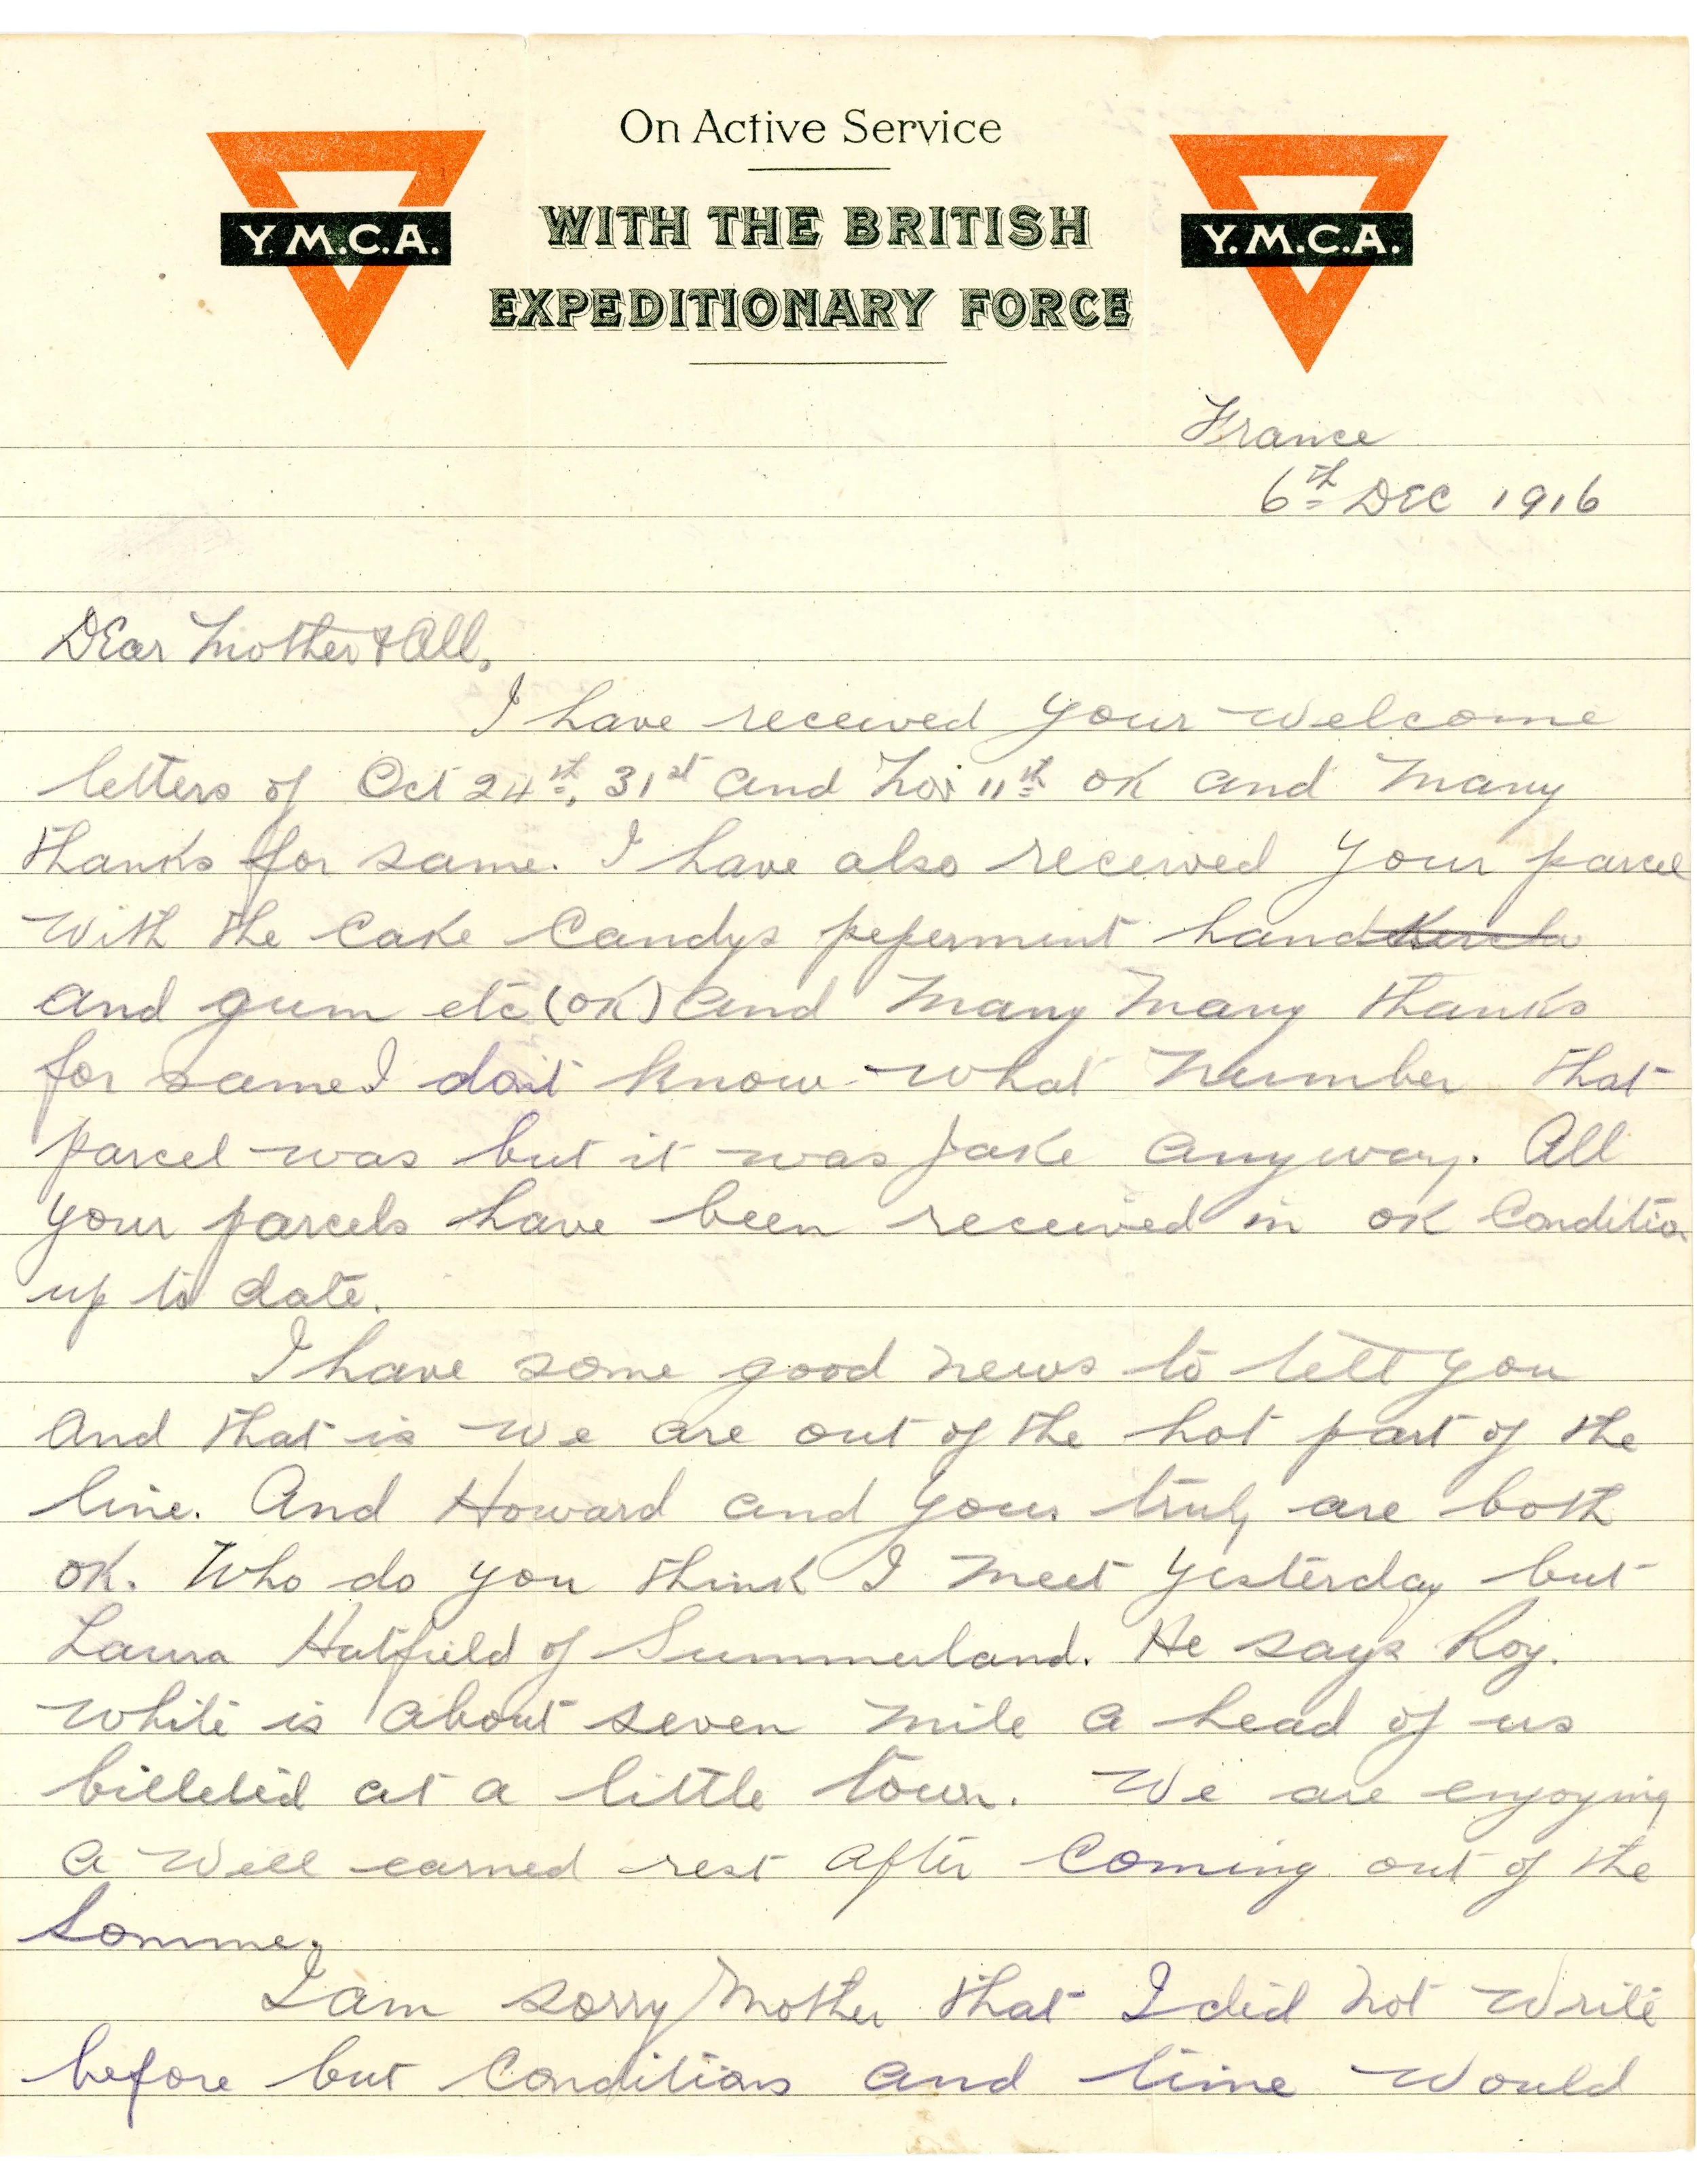 On Active Service
WITH THE BRITISH
EXPEDITIONARY FORCE
Y.M.C.A.
Y.M.C.A.
France
6th DEC 1916
DEar Mother & All,
I have received your welcome
letters of Oct 24th, 31st and Nov 11th OK and Many
thanks for same. I have also received your parcel
with the Cake Candys pepermint hand
and gum etc (OK) and Many Many thanks
for same I don't know what Number that
parcel was but it was jake anyway. All
your parcels have been received in OK Conditio
up to date.
I have some good news to tell you
And that is we are out of the hot part of the
line. And Howard and yours truly are both
OK. Who do you think I meet yesterday but
Hatfield of Summerland. He says Roy.
White is about seven mile a head of us
billeted at a little town. We are enjoying
a well earned rest after Coming out of the
Somme.
I am sorry Mother that I did not write
before but Conditions and time would